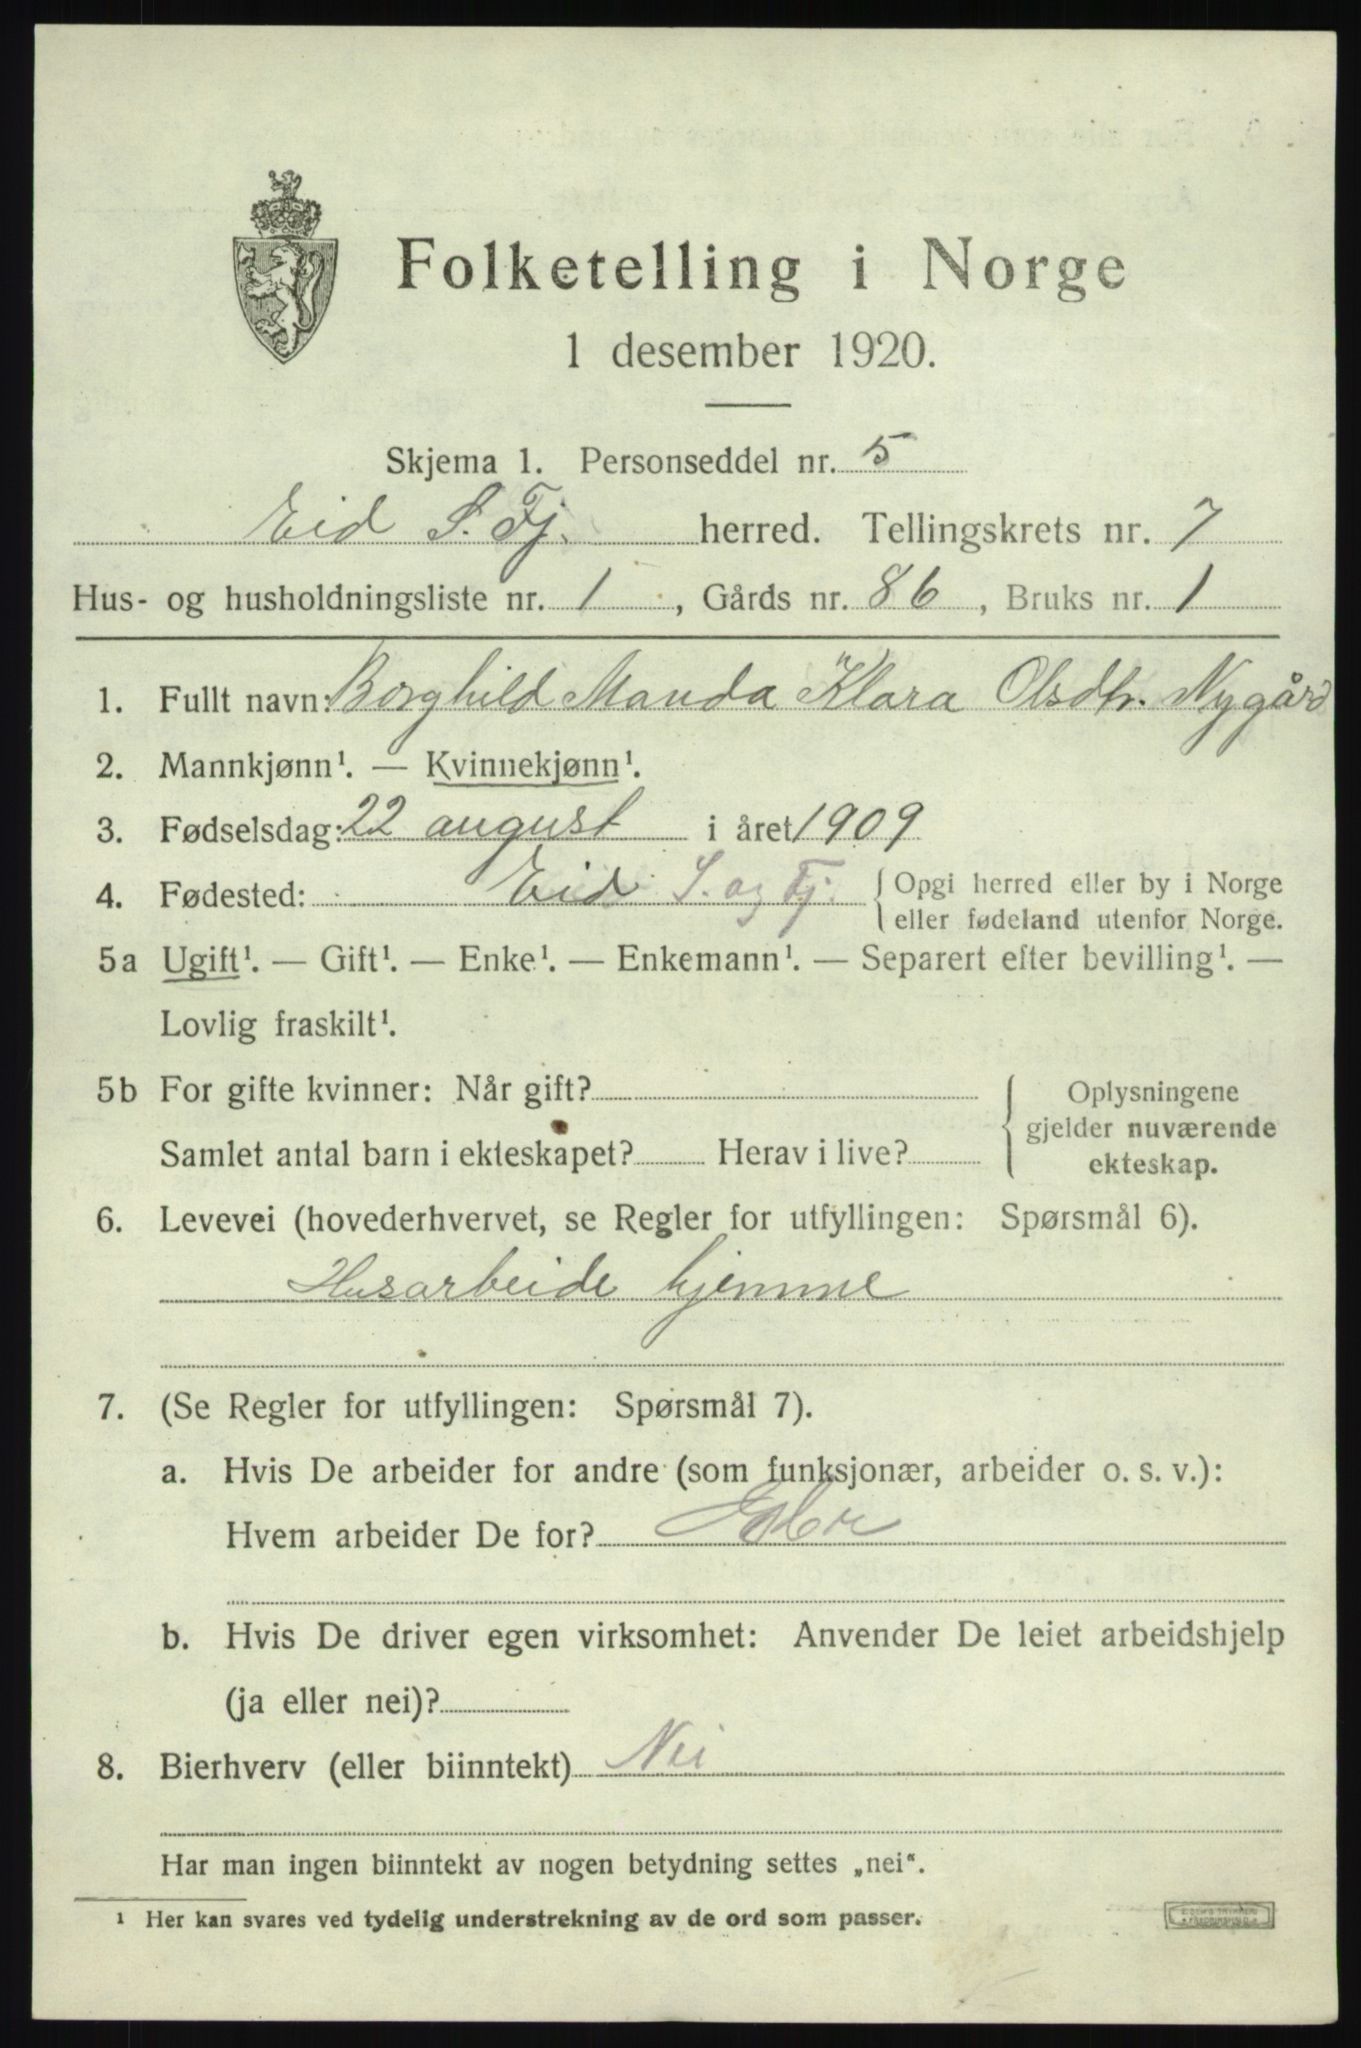 Folketelling i Norge
1 desember 1920.
Skjema 1. Personseddel nr. 5
Eid S. Fj. herred. Tellingskrets nr. 7
Hus- og husholdningsliste nr. 1, Gårds nr. 86, Bruks nr. 1
1. Fullt navn: Borghild Manda Klara Olsdtr. Nygård
2. Mannkjønn¹. — Kvinnekjønn¹.
3. Fødselsdag: 22 august i året 1909
4. Fødested: Eid S. og Fj. { Opgi herred eller by i Norge
eller fødeland utenfor Norge.
5a Ugift¹. — Gift¹. — Enke¹. — Enkemann¹. — Separert efter bevilling¹. —
Lovlig fraskilt¹.
5b For gifte kvinner: Når gift? { Oplysningene
gjelder nuværende
Samlet antal barn i ekteskapet? Herav i live?
ekteskap.
6. Levevei (hovederhvervet, se Regler for utfyllingen: Spørsmål 6).
Husarbeide hjemme
7. (Se Regler for utfyllingen: Spørsmål 7).
a. Hvis De arbeider for andre (som funksjonær, arbeider o. s. v.):
Hvem arbeider De for?
b. Hvis De driver egen virksomhet: Anvender De leiet arbeidshjelp
(ja eller nei)?
8. Bierhverv (eller biinntekt) Nei
Har man ingen biinntekt av nogen betydning settes „nei“.
¹ Her kan svares ved tydelig understrekning av de ord som passer.